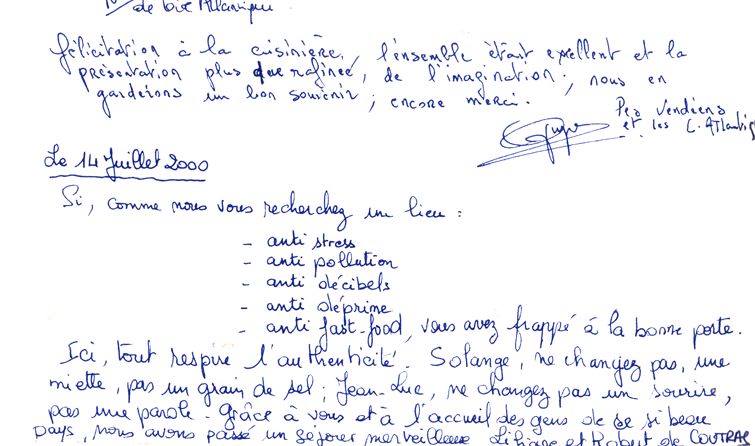 de Loire Atlantique
félicitation à la cuisinière, l'ensemble étant excellent et la
présentation plus que rafinée, de l'imagination, nous en
garderons un bon souvenir ; encore merci.
Les Vendéens
et les L. Atlantiq
Le 14 Juillet 2000
Si, comme nous vous recherchez un lieu :
- anti stress
- anti pollution
- anti décibels
- anti déprime
- anti fast-food, vous avez frappé à la bonne porte.
Ici, tout respire l'authenticité. Solange, ne changez pas, une
miette, pas un grain de sel ; Jean-Luc, ne changez pas un sourire,
pas une parole. Grâce à vous et à l'accueil des gens de ce si beau
pays, nous avons passé un séjour merveilleux Liliane et Robert de COUTRAS